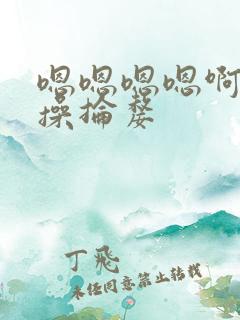 嗯嗯嗯嗯啊
操掄嫠
丁飛
未经同意禁止转载